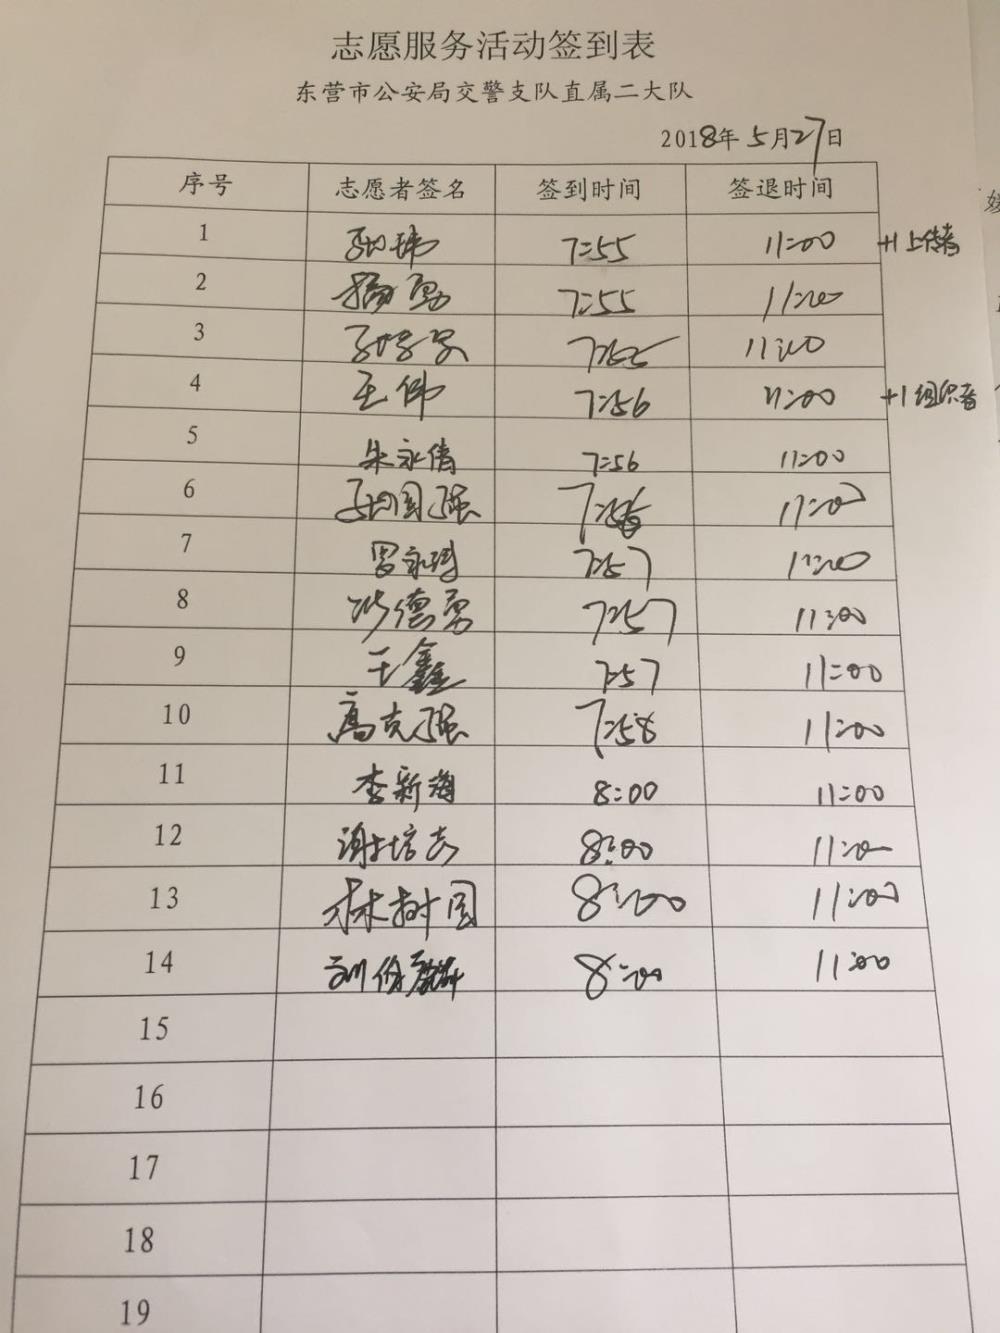 志愿服务活动签到表
东营市公安局交警支队直属二大队
2018年5月27日
序号 志愿者签名 签到时间 签退时间
1 7:55 11:00 +1上传者
2 杨勇 7:55 11:00
3 7:55 11:00
4 王伟 7:56 11:00 +1组织者
5 朱永倩 7:56 11:00
6 国强 7:56 11:00
7 7:57 11:00
8 德勇 7:57 11:00
9 王鑫 7:57 11:00
10 高克强 7:58 11:00
11 李新海 8:00 11:00
12 谢培志 8:00 11:00
13 林树国 8:00 11:00
14 8:00 11:00
15
16
17
18
19